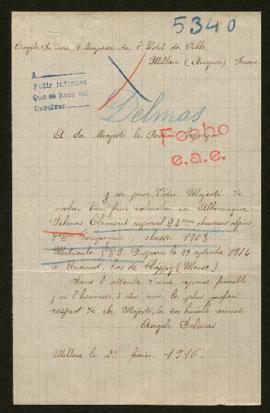 5340
Angèle Delmas, 1 Impasse de l'Hôtel de Ville,
Millau (Aveyron) France.
A
Pedir informes
Que se hace así
Devolver
Delmas
Fecho
e.a.e.
A Sa Majesté le
Je prie Votre Majesté de
en Allemagne
Delmas Clément caporal 24ème chasseurs alpins
compagnie classe 1903
Matricule 189. Disparu le 23 septembre 1914
à bois de (Meuse).
Dans l'attente d'une réponse favorable,
j'ai l'honneur d'être avec le plus profond
respect de Sa Majesté, la très humble servante.
Angèle Delmas
Millau le février 1916.